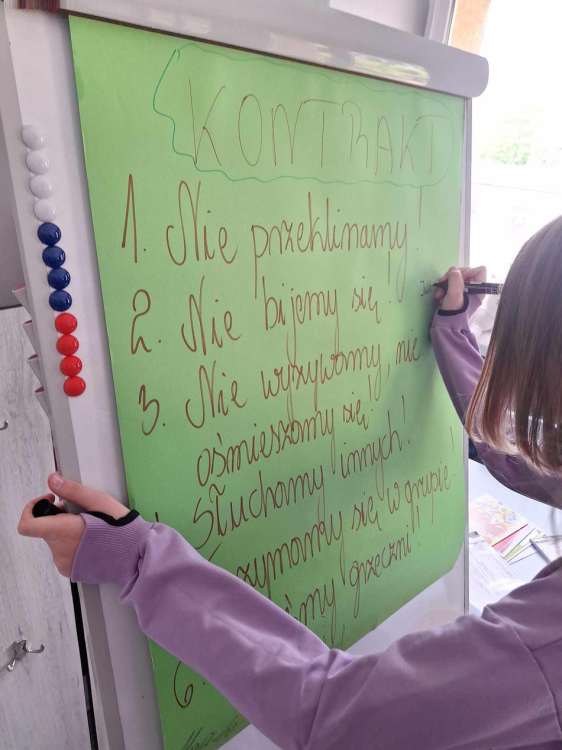 KONTRAKT
1. Nie przeklinamy!
2. Nie bijemy się!
3. Nie wyzywamy, nie
ośmieszamy się!
Słuchamy innych!
zymamy się w grupie!
my grzeczni
6.